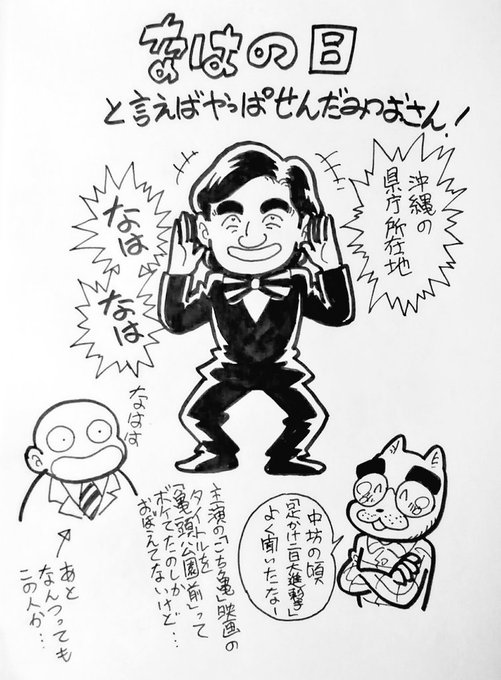 なはの日
と言えばやっぱせんだみつおさん!
沖縄の
県庁所在地
なは
なは
なはす
中坊の頃
「足かけ二百大進撃」
よく聞いたなー
主演の「こち亀」映画の
タイトルを
「亀頭公園前」って
ボケてたのしか
おぼえてないけど…
あと
なんつっても
この人か…